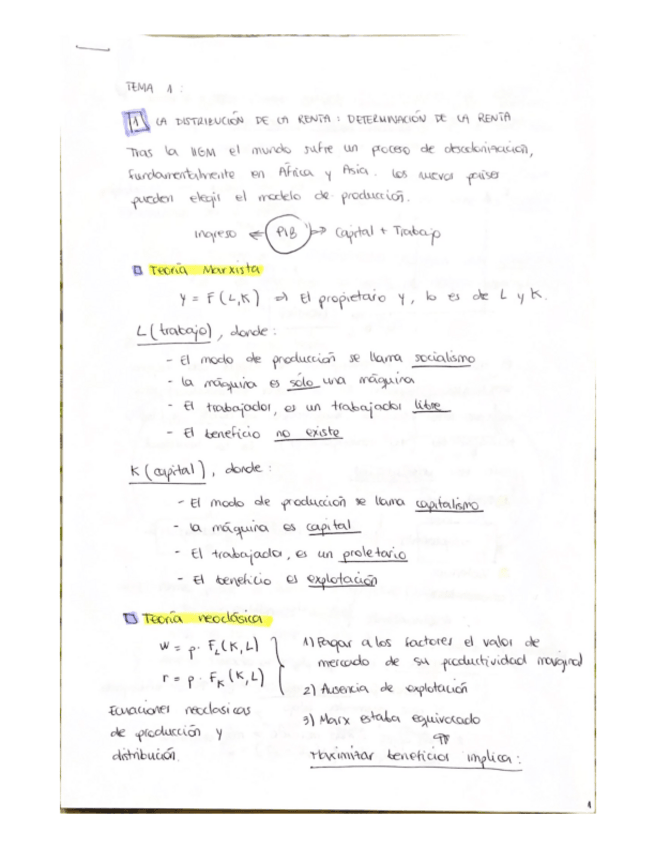 TEMA 1:
1 LA DISTRIBUCIÓN DE LA RENTA: DETERMINACIÓN DE LA RENTA
Tras la IIGM el mundo sufre un proceso de descolonización,
fundamentalmente en África y Asia. Los nuevos países
pueden elegir el modelo de producción.
Ingreso ← PIB → Capital + Trabajo
Teoría Marxista
Y = F(L,K) ⇒ El propietario Y, lo es de L y K.
L (trabajo), donde:
- El modo de producción se llama socialismo
- La máquina es sólo una máquina
- El trabajador, es un trabajador libre
- El beneficio no existe
K (capital), donde:
- El modo de producción se llama capitalismo
- La máquina es capital
- El trabajador, es un proletario
- El beneficio es explotación
Teoría neoclásica
w = p · F_L (K,L)
r = p · F_K (K,L)
Ecuaciones neoclásicas
de producción y
distribución
1) Pagar a los factores el valor de
mercado de su productividad marginal
2) Ausencia de explotación
3) Marx estaba equivocado
Maximizar beneficios implica:
1